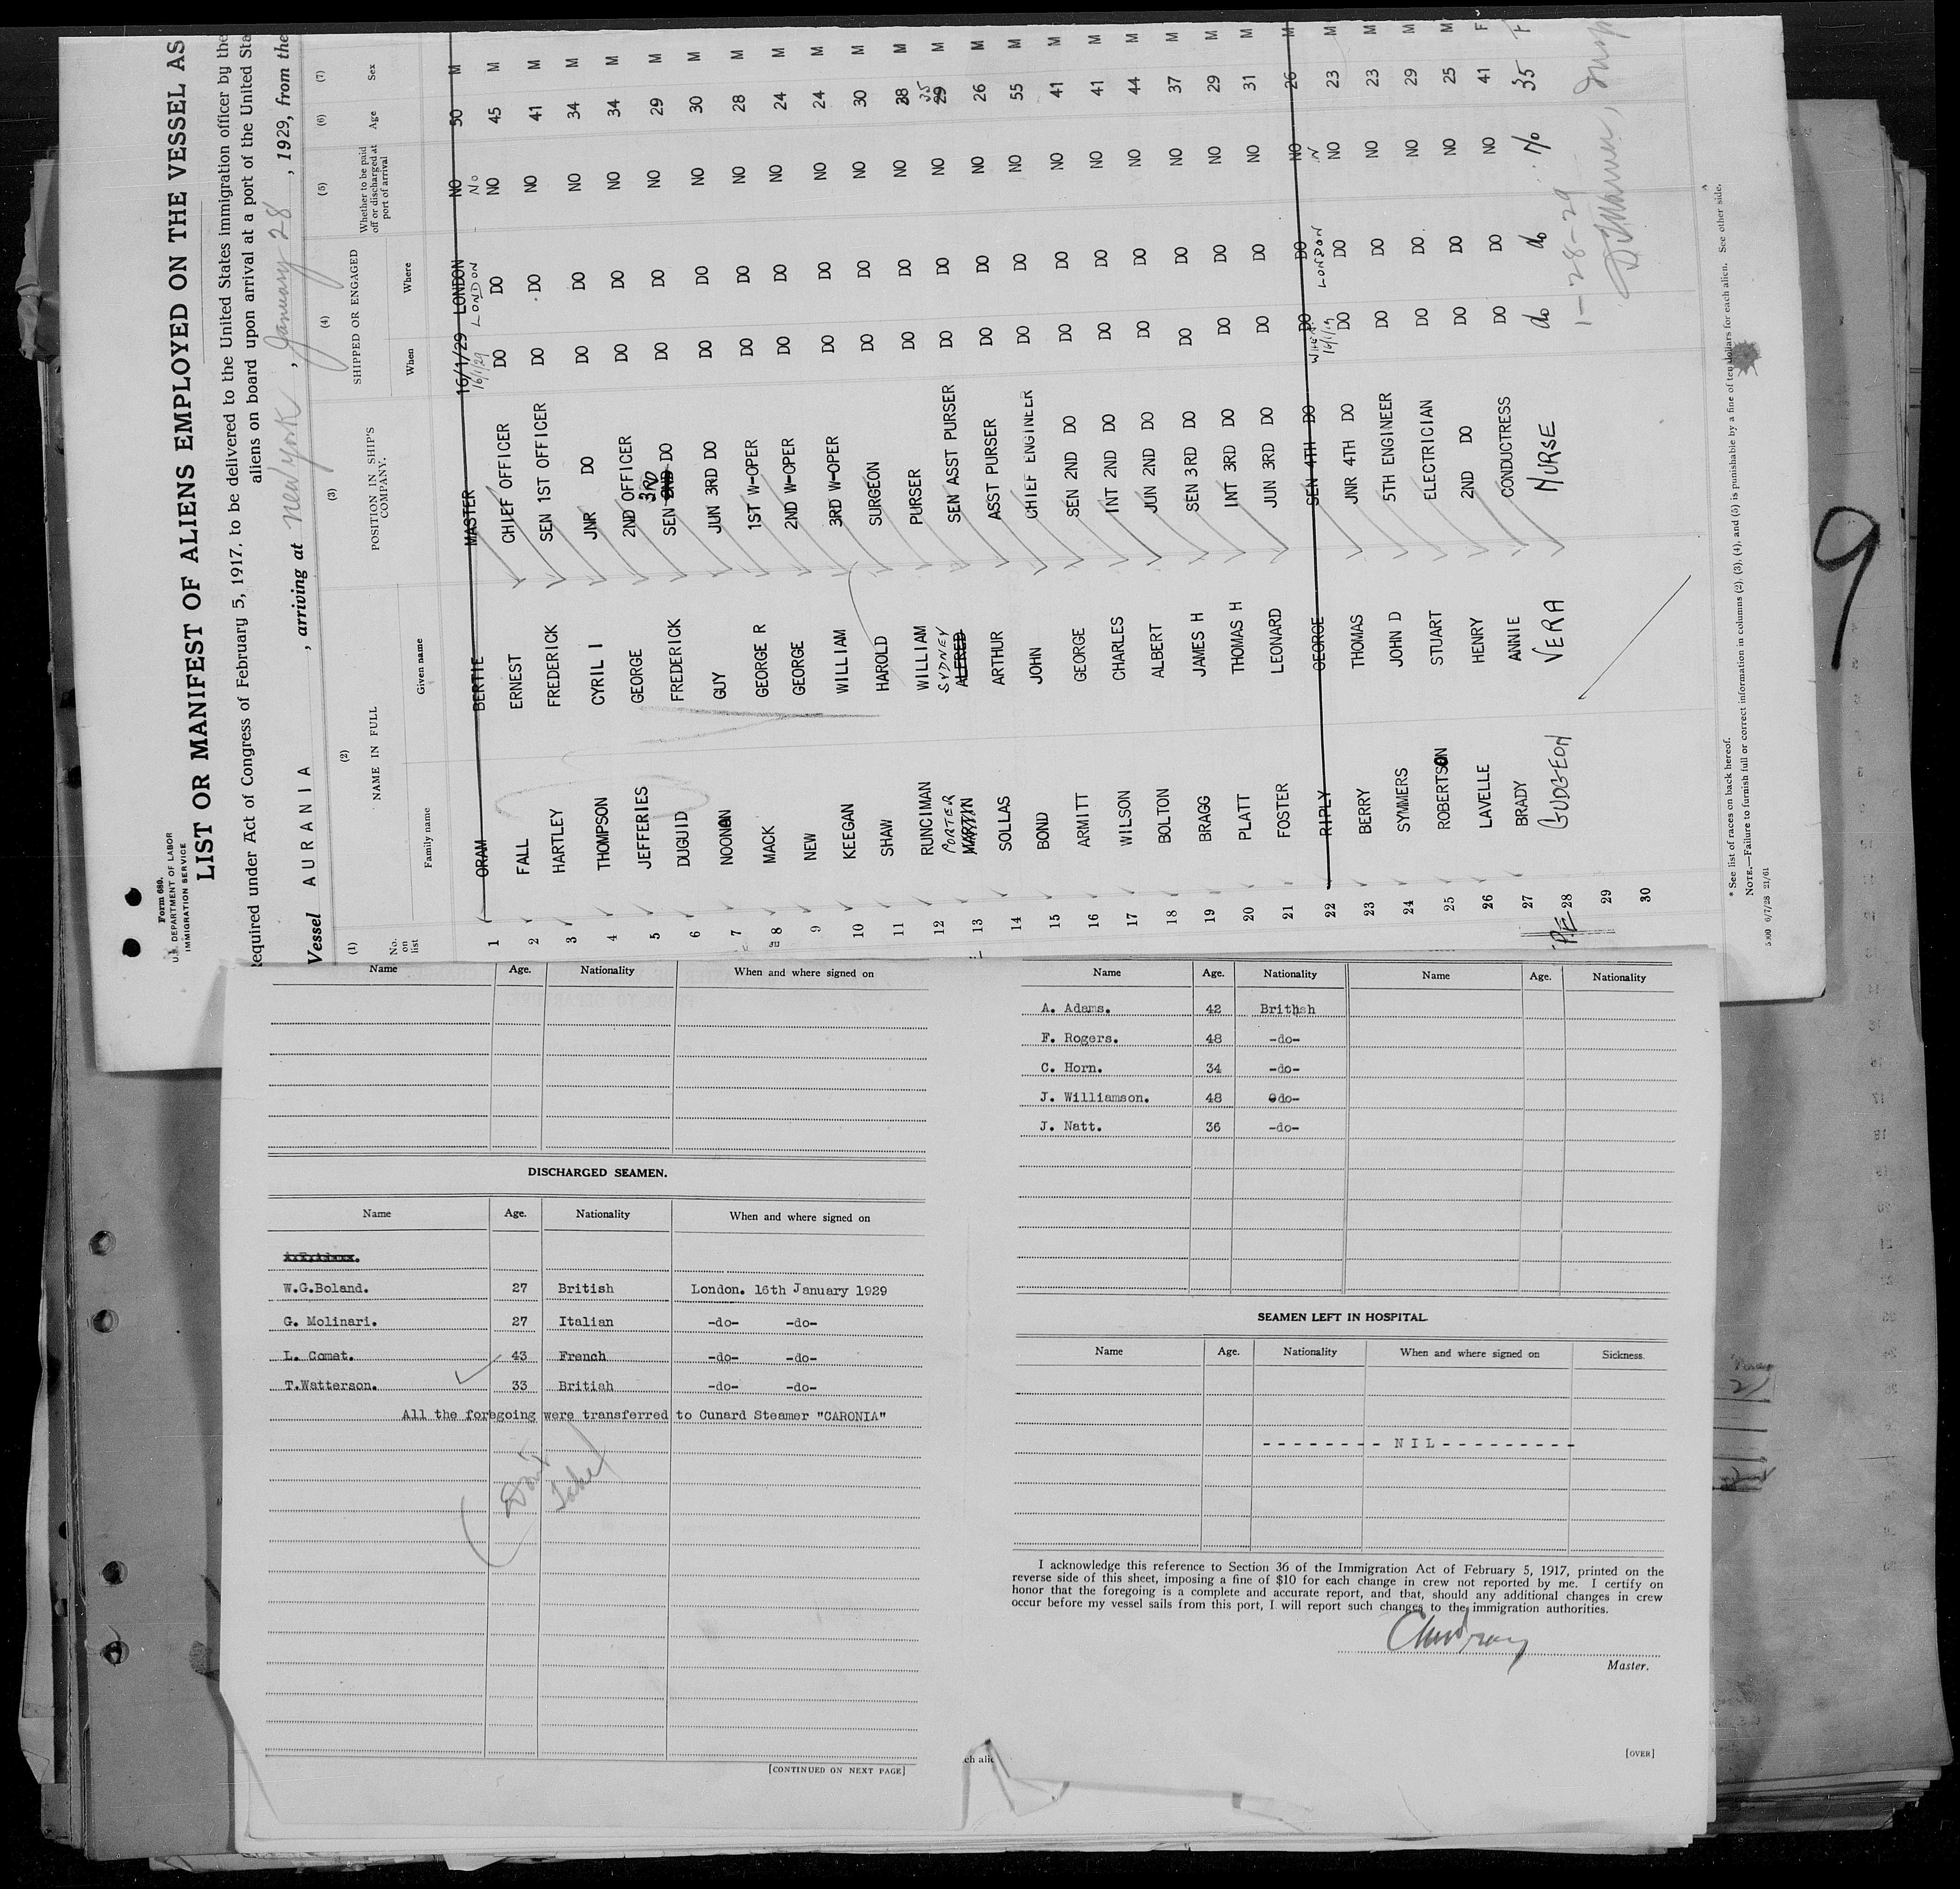 Form 680.
U.S. DEPARTMENT OF LABOR
IMMIGRATION SERVICE
LIST OR MANIFEST OF ALIENS EMPLOYED ON THE VESSEL AS
Required under Act of Congress of February 5, 1917, to be delivered to the United States immigration officer by the
aliens on board upon arrival at a port of the United Sta
Vessel AURANIA , arriving at New York , January 28 , 1929, from the
(1) (2) (3) (4) (5) (6) (7)
No. on list NAME IN FULL POSITION IN SHIP'S COMPANY. SHIPPED OR ENGAGED Whether to be paid off or discharged at port of arrival Age Sex
Family name Given name When Where
1 ORAM BERTIE MASTER 16/1/29 LONDON NO 50 M
16/1/29 LONDON No
2 FALL ERNEST CHIEF OFFICER DO DO NO 45 M
3 HARTLEY FREDERICK SEN 1ST OFFICER DO DO NO 41 M
4 THOMPSON CYRIL I JNR DO DO DO NO 34 M
5 JEFFERIES GEORGE 2ND OFFICER DO DO NO 34 M
6 DUGUID FREDERICK SEN 2ND 3RD DO DO DO NO 29 M
7 NOONAN GUY JUN 3RD DO DO DO NO 30 M
8 MACK GEORGE R 1ST W-OPER DO DO NO 28 M
9 NEW GEORGE 2ND W-OPER DO DO NO 24 M
10 KEEGAN WILLIAM 3RD W-OPER DO DO NO 24 M
11 SHAW HAROLD SURGEON DO DO NO 30 M
12 RUNCIMAN WILLIAM PURSER DO DO NO 38 M
13 PORTER MARTIN SYDNEY ALFRED SEN ASST PURSER DO DO NO 35 29 M
14 SOLLAS ARTHUR ASST PURSER DO DO NO 26 M
15 BOND JOHN CHIEF ENGINEER DO DO NO 55 M
16 ARMITT GEORGE SEN 2ND DO DO DO NO 41 M
17 WILSON CHARLES INT 2ND DO DO DO NO 41 M
18 BOLTON ALBERT JUN 2ND DO DO DO NO 44 M
19 BRAGG JAMES H SEN 3RD DO DO DO NO 37 M
20 PLATT THOMAS H INT 3RD DO DO DO NO 29 M
21 FOSTER LEONARD JUN 3RD DO DO DO NO 31 M
22 RIPLY GEORGE SEN 4TH DO DO DO NO 26 M
16/1/19 LONDON
23 BERRY THOMAS JNR 4TH DO DO DO NO 23 M
24 SYMMERS JOHN D 5TH ENGINEER DO DO NO 23 M
25 ROBERTSON STUART ELECTRICIAN DO DO NO 29 M
26 LAVELLE HENRY 2ND DO DO DO NO 25 M
27 BRADY ANNIE CONDUCTRESS DO DO NO 41 F
28 GUDGEON VERA NURSE do do No 35 F
29
30
1-28-29
* See list of races on back hereof.
NOTE.—Failure to furnish full or correct information in columns (2), (3), (4), and (5) is punishable by a fine of ten dollars for each alien. See other side.
5,000 6/7/28 21/61
9
Name Age. Nationality When and where signed on
DISCHARGED SEAMEN.
Name Age. Nationality When and where signed on
W.G.Boland. 27 British London. 16th January 1929
G. Molinari. 27 Italian -do- -do-
L. Comet. 43 French -do- -do-
T.Watterson. 33 British -do- -do-
All the foregoing were transferred to Cunard Steamer "CARONIA"
[CONTINUED ON NEXT PAGE]
Name Age. Nationality Name Age. Nationality
A. Adams. 42 British
F. Rogers. 48 -do-
C. Horn. 34 -do-
J. Williamson. 48 -do-
J. Natt. 36 -do-
SEAMEN LEFT IN HOSPITAL
Name Age. Nationality When and where signed on Sickness.
- - - - - - - - N I L - - - - - - - - - -
I acknowledge this reference to Section 36 of the Immigration Act of February 5, 1917, printed on the
reverse side of this sheet, imposing a fine of $10 for each change in crew not reported by me. I certify on
honor that the foregoing is a complete and accurate report, and that, should any additional changes in crew
occur before my vessel sails from this port, I will report such changes to the immigration authorities.
Master.
ch alie
[OVER]